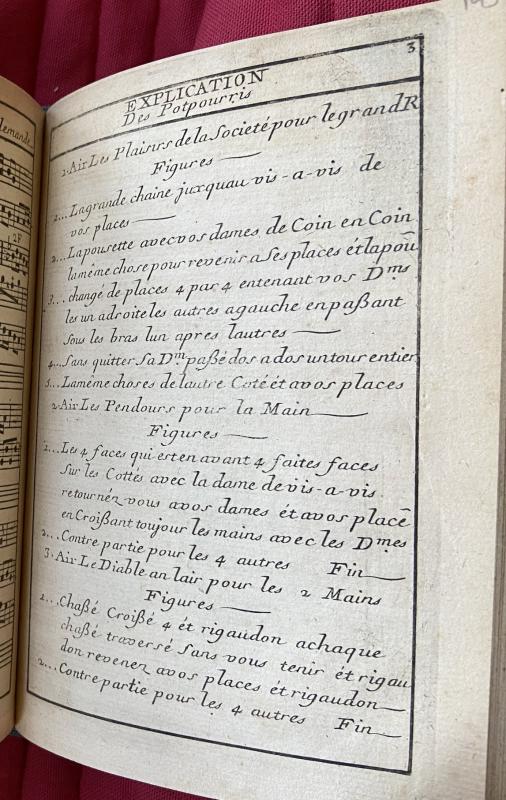 3
EXPLICATION
Des Potpourris
1. Air Les Plaisirs de la Societé pour le grand R
Figures
1... La grande chaine juxquau vis-a-vis de
vos places
2... La pousette avec vos dames, de Coin en Coin
la même chose pour revenir a Ses places ét la poū
3... changé de places 4 par 4 en tenant vos Dmes
les un a droite les autres a gauche en paßant
Sous les bras lun apres lautres
4... Sans quitter Sa Dme paßé dos a dos un tour entier
5... La même choses de lautre Coté ét a vos places
2. Air Les Pendours pour la Main
Figures
1... Les 4 faces qui est en avant 4 faites faces
Sur les Cottés avec la dame de vis-a-vis
retournéz vous a vos dames ét a vos placē
en Croißant toujour les mains avec les Dmes
2... Contre partie pour les 4 autres Fin
3. Air Le Diable an lair pour les 2 Mains
Figures
1... Chaßé Croißé 4 ét rigaudon a chaque
chaßé traversé Sans vous tenir ét rigau
don revenez a vos places ét rigaudon
2... Contre partie pour les 4 autres Fin
lemande
2F